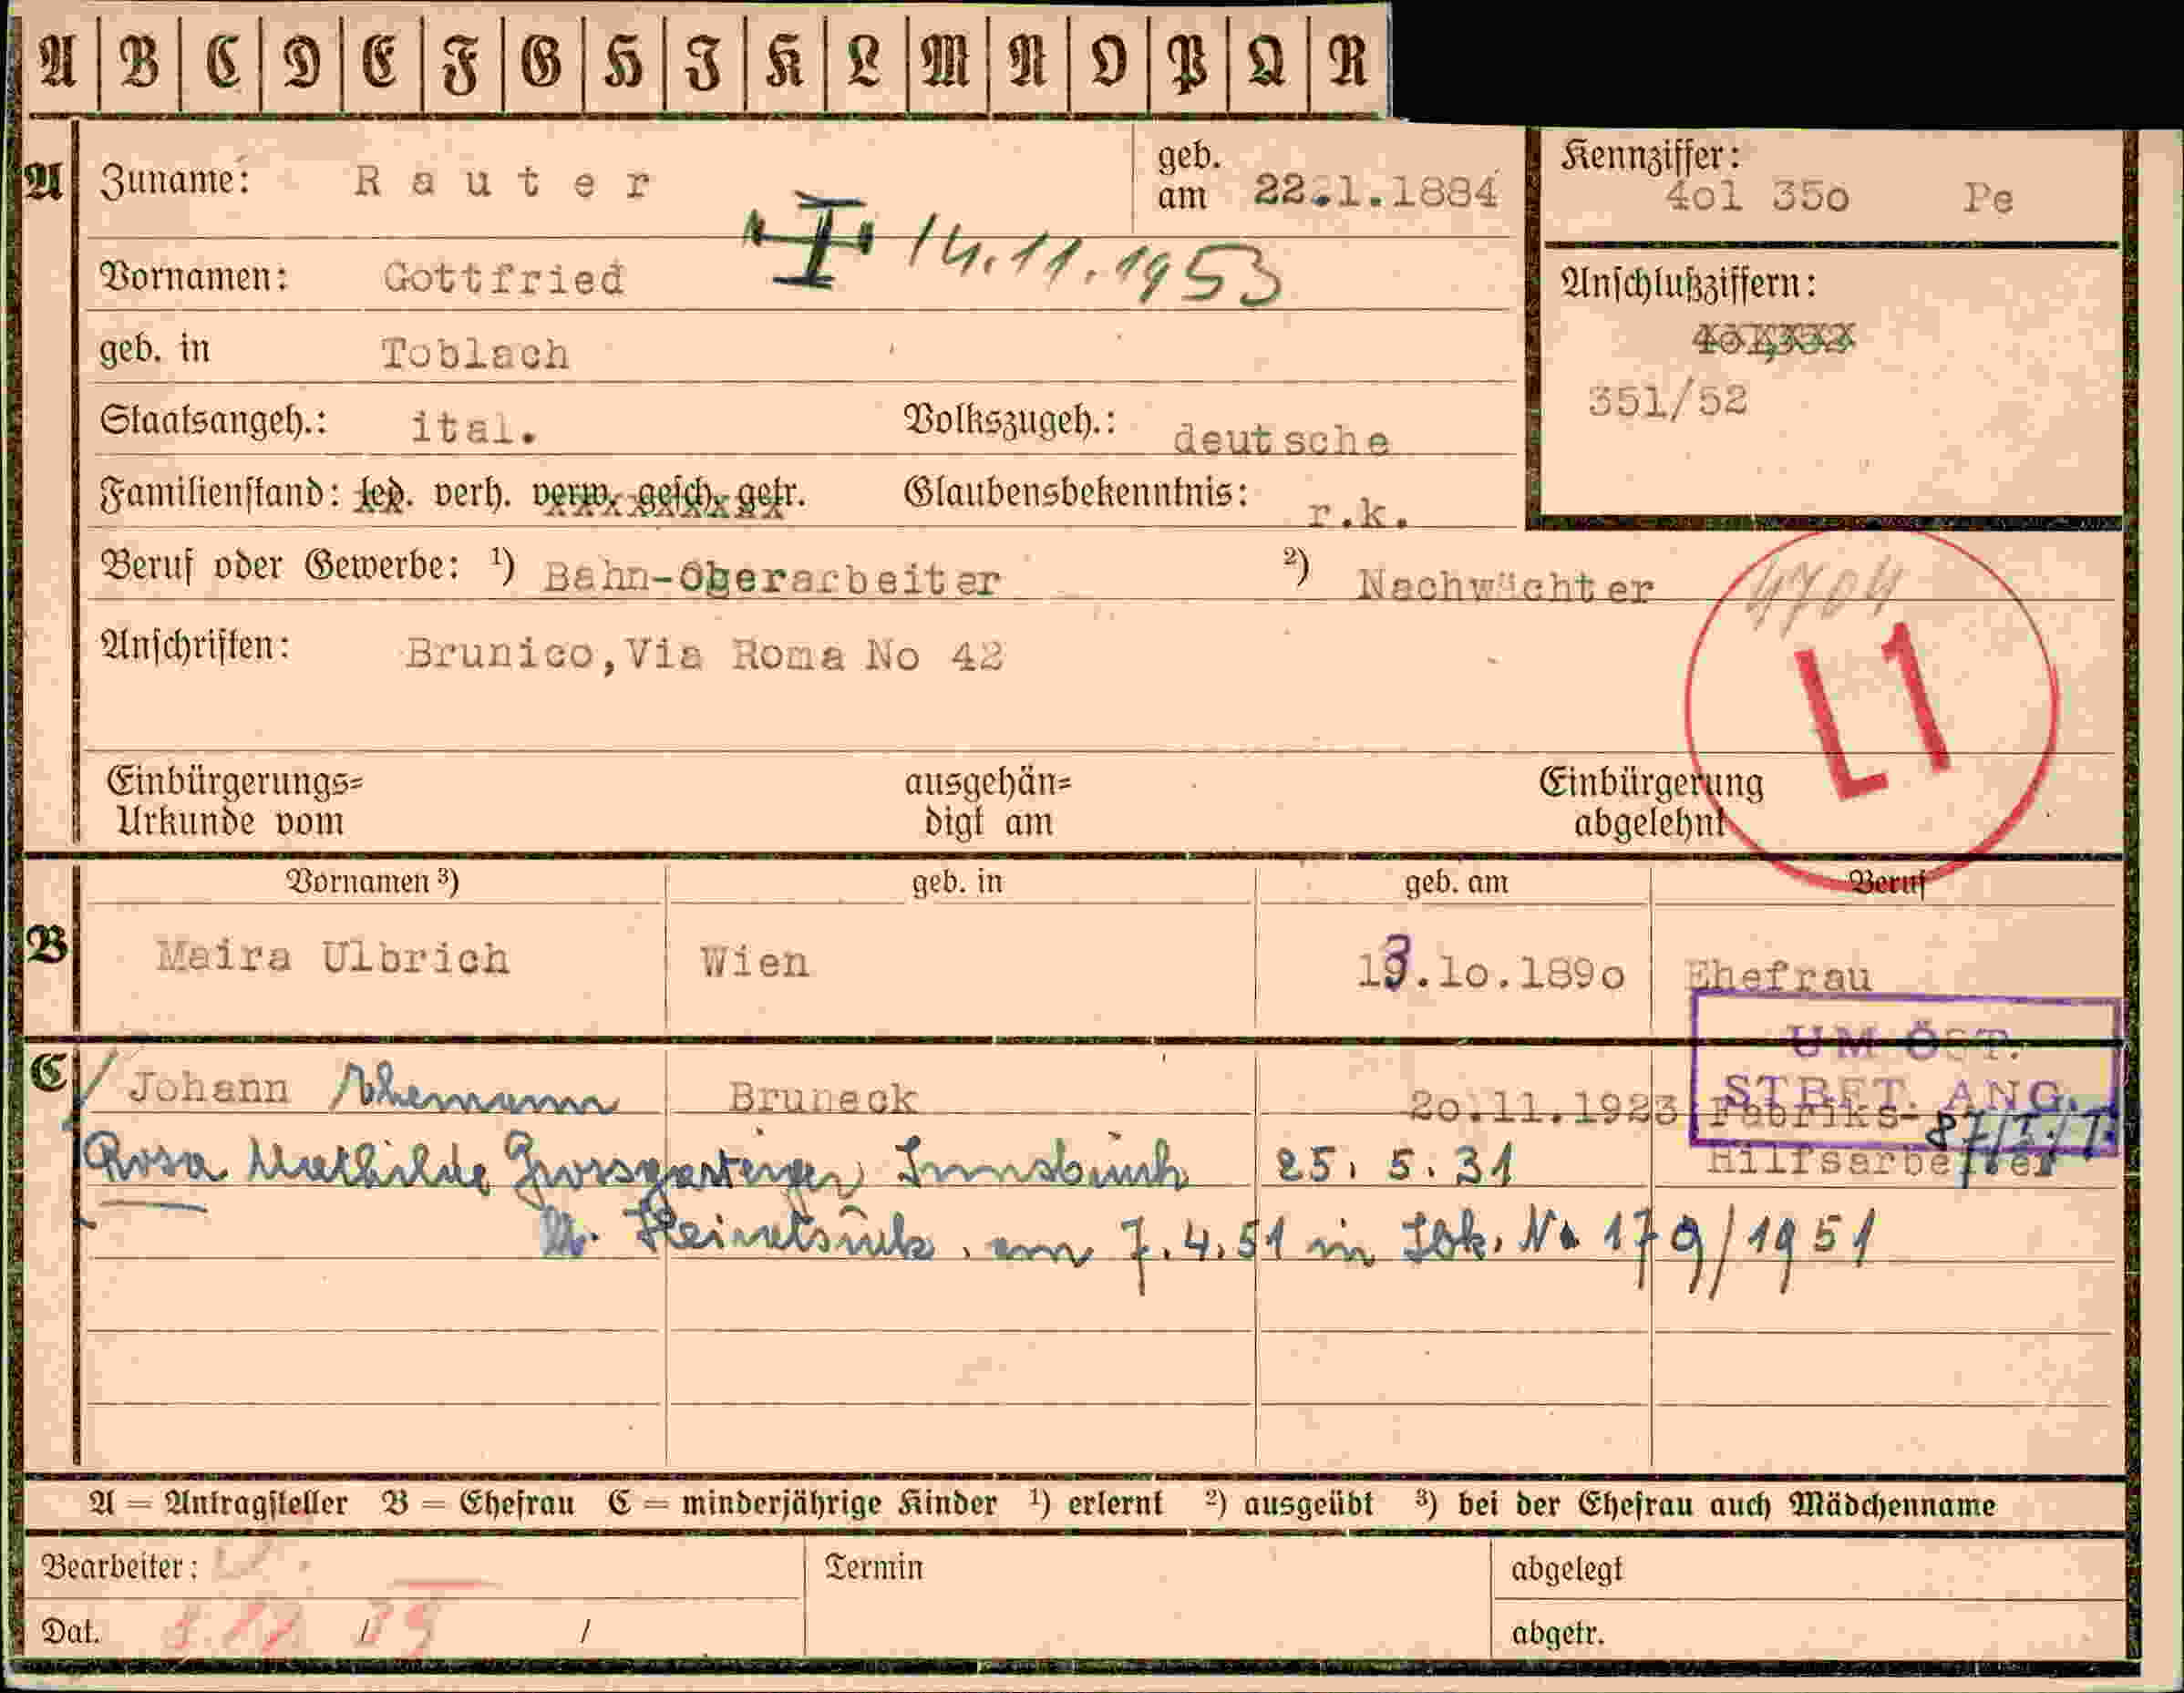 A B C D E F G H I K L M N O P Q R
A Zuname: Rauter geb. am 22.1.1884
Kennziffer: 4o1 35o Pe
14.11.1953
Vornamen: Gottfried
Anschlußziffern:
geb. in Toblach
351/52
Staatsangeh.: ital. Volkszugeh.: deutsche
Familienstand: led. verh. verw. gesch. getr. Glaubensbekenntnis: r.k.
Beruf oder Gewerbe: ¹) Bahn-Oberarbeiter ²) Nachwächter
4704
L1
Anschriften: Brunico,Via Roma No 42
Einbürgerungs=
Urkunde vom
ausgehän=
digt am
Einbürgerung
abgelehnt
Vornamen ³) geb. in geb. am Beruf
B Maira Ulbrich Wien 13.1o.189o Ehefrau
UM ÖST.
STBFT. ANG.
87/I./T.
C Johann Ehemann Bruneck 2o.11.1923 Fabriks-
Hilfsarbeiter
Rosa Mathilde Grossgasteiger Innsbruck 25. 5. 31
am 7.4.51 in Ibk. No 179/1951
A = Antragsteller B = Ehefrau C = minderjährige Kinder ¹) erlernt ²) ausgeübt ³) bei der Ehefrau auch Mädchenname
Bearbeiter: Termin abgelegt
Dat. / / abgetr.